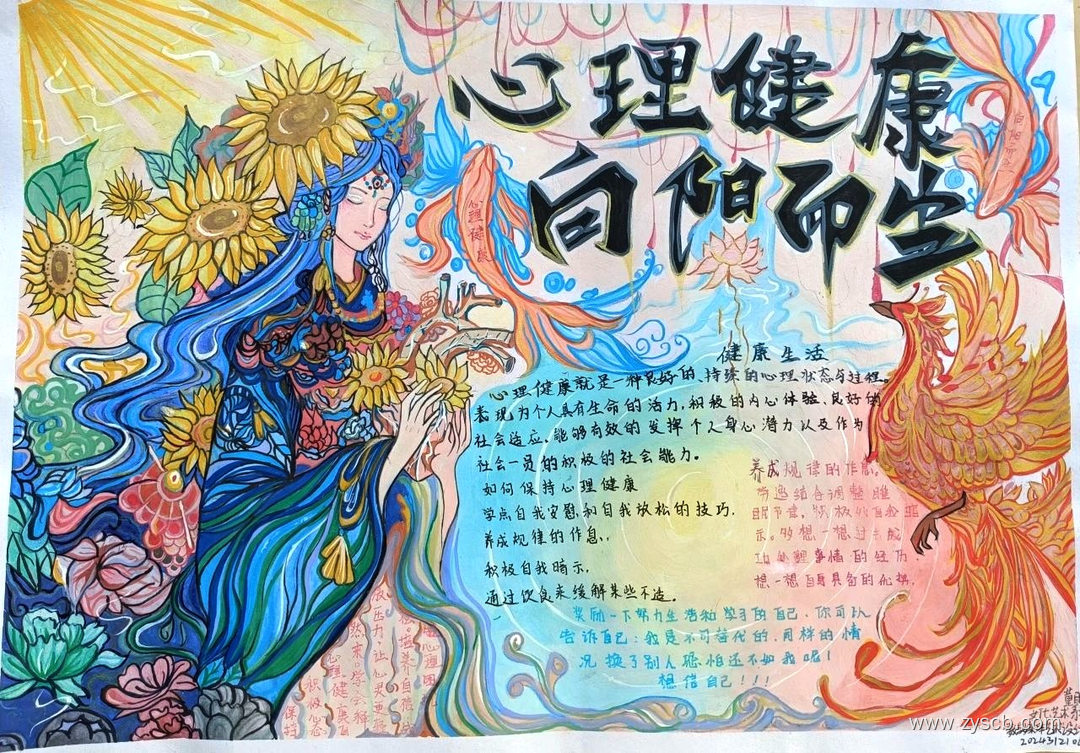 心理健康
向阳而生
心理健康
向阳而生
健康生活
心理健康就是一种良好的、持续的心理状态与过程。
表现为个人具有生命的活力,积极的内心体验,良好的
社会适应,能够有效的发挥个人身心潜力以及作为
社会一员的积极的社会能力。
如何保持心理健康
学点自我安慰和自我放松的技巧.
养成规律的作息,.
积极自我暗示,
通过饮食来缓解某些不适。
养成规律的作息,
劳逸结合调整睡
眠节律,积极的自我暗
示。多想一想过去成
功处理事情的经历,
想一想自身具备的优势,
奖励一下努力生活和学习的自己,你可以
告诉自己:我是不可替代的,同样的情
况换了别人恐怕还不如我呢!
想信自己!!!
www.zyscb.com